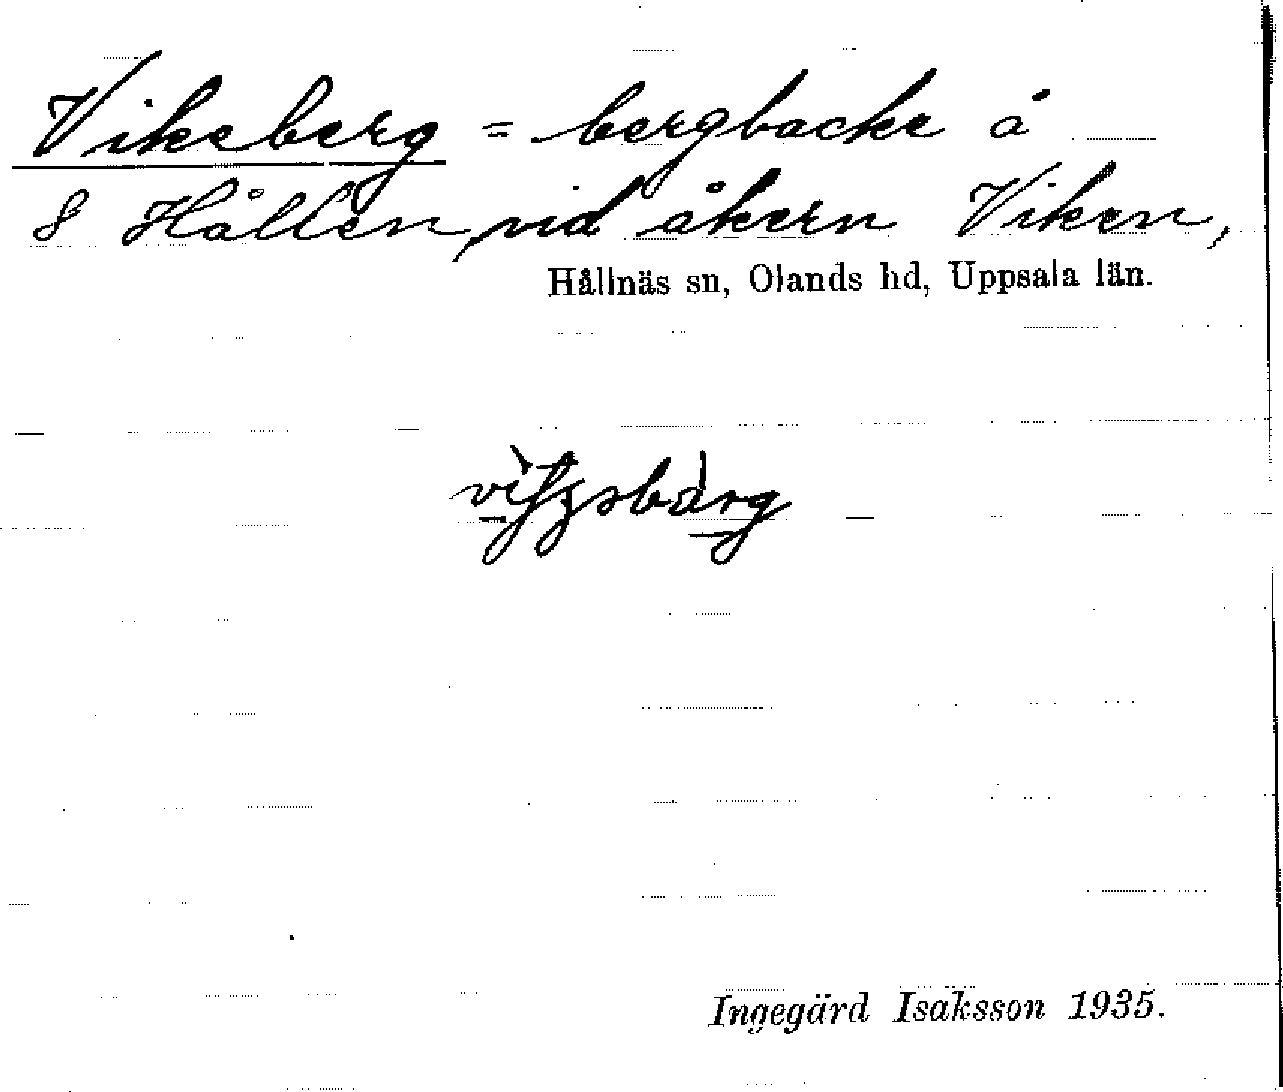 Vikeberg = bergbacke å
8 Hållen, vid åkern Viken,
Hållnäs sn, Olands hd, Uppsala län.
Ingegärd Isaksson 1935.